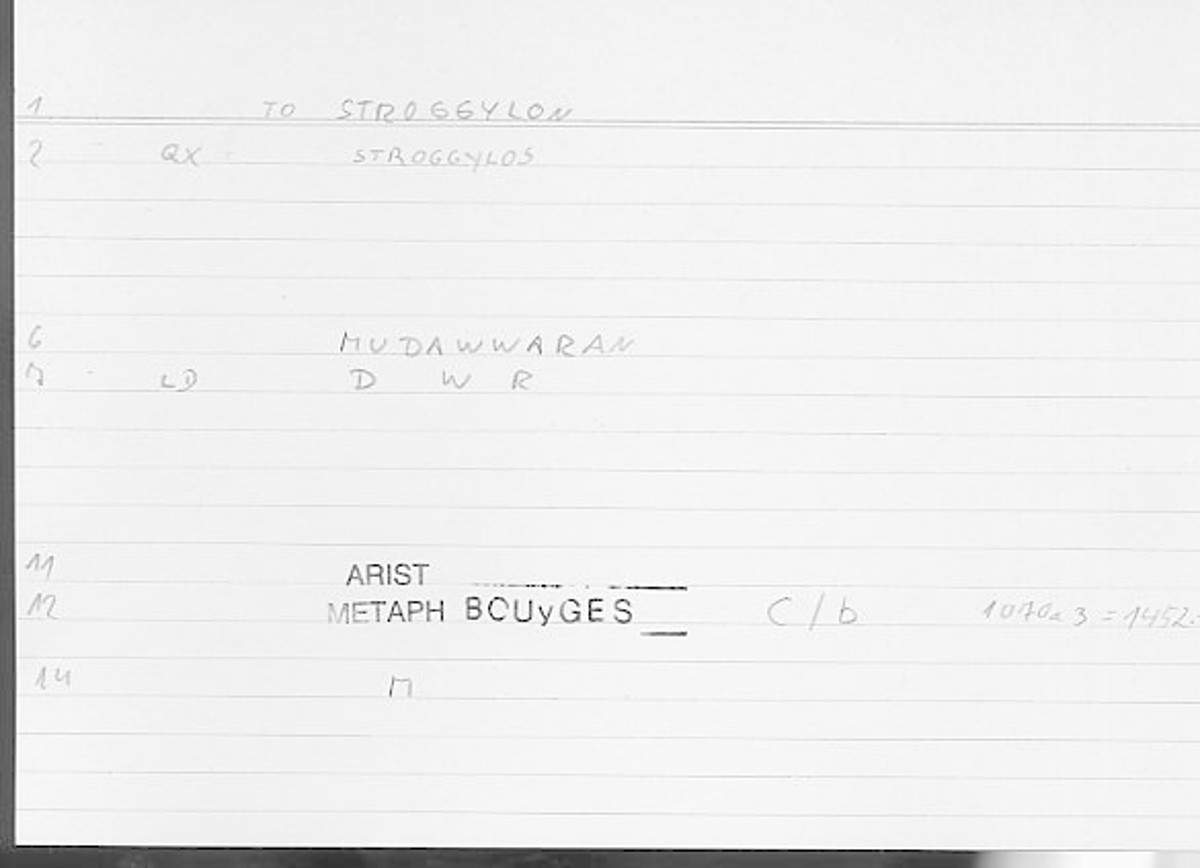 1 TO STROGGYLON
2 QX STROGGYLOS
6 MUDAWWARAN
7 LD D W R
11 ARIST
12 METAPH BOUyGES C/b 1070a3=1452.
14 M